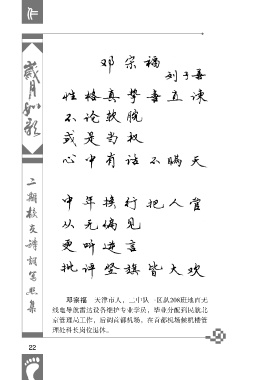 作
岁月如歌
二期校友诗词写照集
邓宗福
刘于善
性格真挚喜直谏
不论软腕
或是当权
心中有话不瞒天
中年换行把人管
从无偏见
更听进言
批评坚旗皆大欢
邓宗福 天津市人，二中队一区队208班地面无
线电导航雷达设备维护专业学员，毕业分配到民航北
京管理局工作，后调首都机场，在首都机场候机楼管
理处科长岗位退休。
22